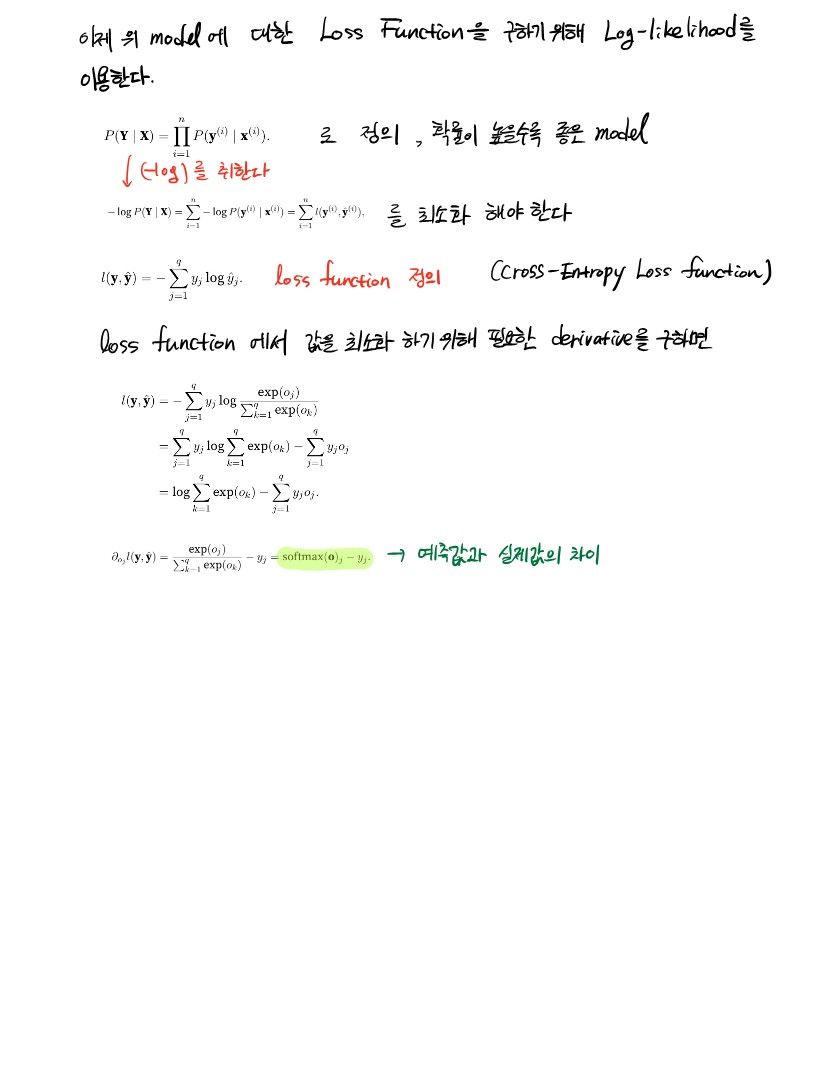 이제 위 model에 대한 Loss Function을 구하기 위해 Log-likelihood를
이용한다.
P(Y | X) = ∏_{i=1}^{n} P(y^{(i)} | x^{(i)}). 로 정의, 확률이 높을수록 좋은 model
↓ (-log)를 취한다
− log P(Y | X) = ∑_{i=1}^{n} − log P(y^{(i)} | x^{(i)}) = ∑_{i=1}^{n} l(y^{(i)}, ŷ^{(i)}), 를 최소화 해야 한다
l(y, ŷ) = − ∑_{j=1}^{q} y_j log ŷ_j. loss function 정의 (Cross-Entropy Loss function)
loss function 에서 값을 최소화 하기 위해 필요한 derivative를 구하면
l(y, ŷ) = − ∑_{j=1}^{q} y_j log exp(o_j) / ∑_{k=1}^{q} exp(o_k)
= ∑_{j=1}^{q} y_j log ∑_{k=1}^{q} exp(o_k) − ∑_{j=1}^{q} y_j o_j
= log ∑_{k=1}^{q} exp(o_k) − ∑_{j=1}^{q} y_j o_j.
∂_{o_j} l(y, ŷ) = exp(o_j) / ∑_{k=1}^{q} exp(o_k) − y_j = softmax(o)_j − y_j. → 예측값과 실제값의 차이